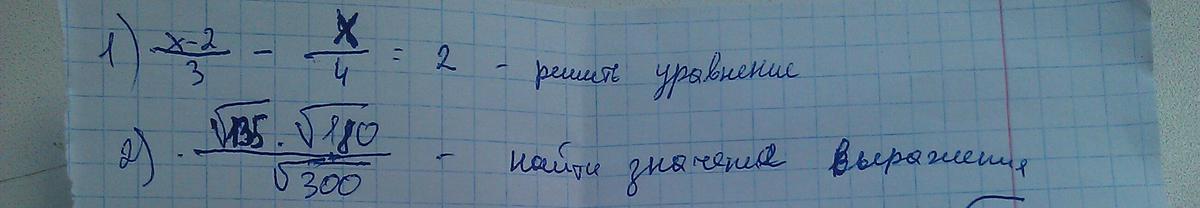 1) (x-2)/3 - x/4 = 2 - решить уравнение
2) (√135 · √180)/√300 - найти значение выражения